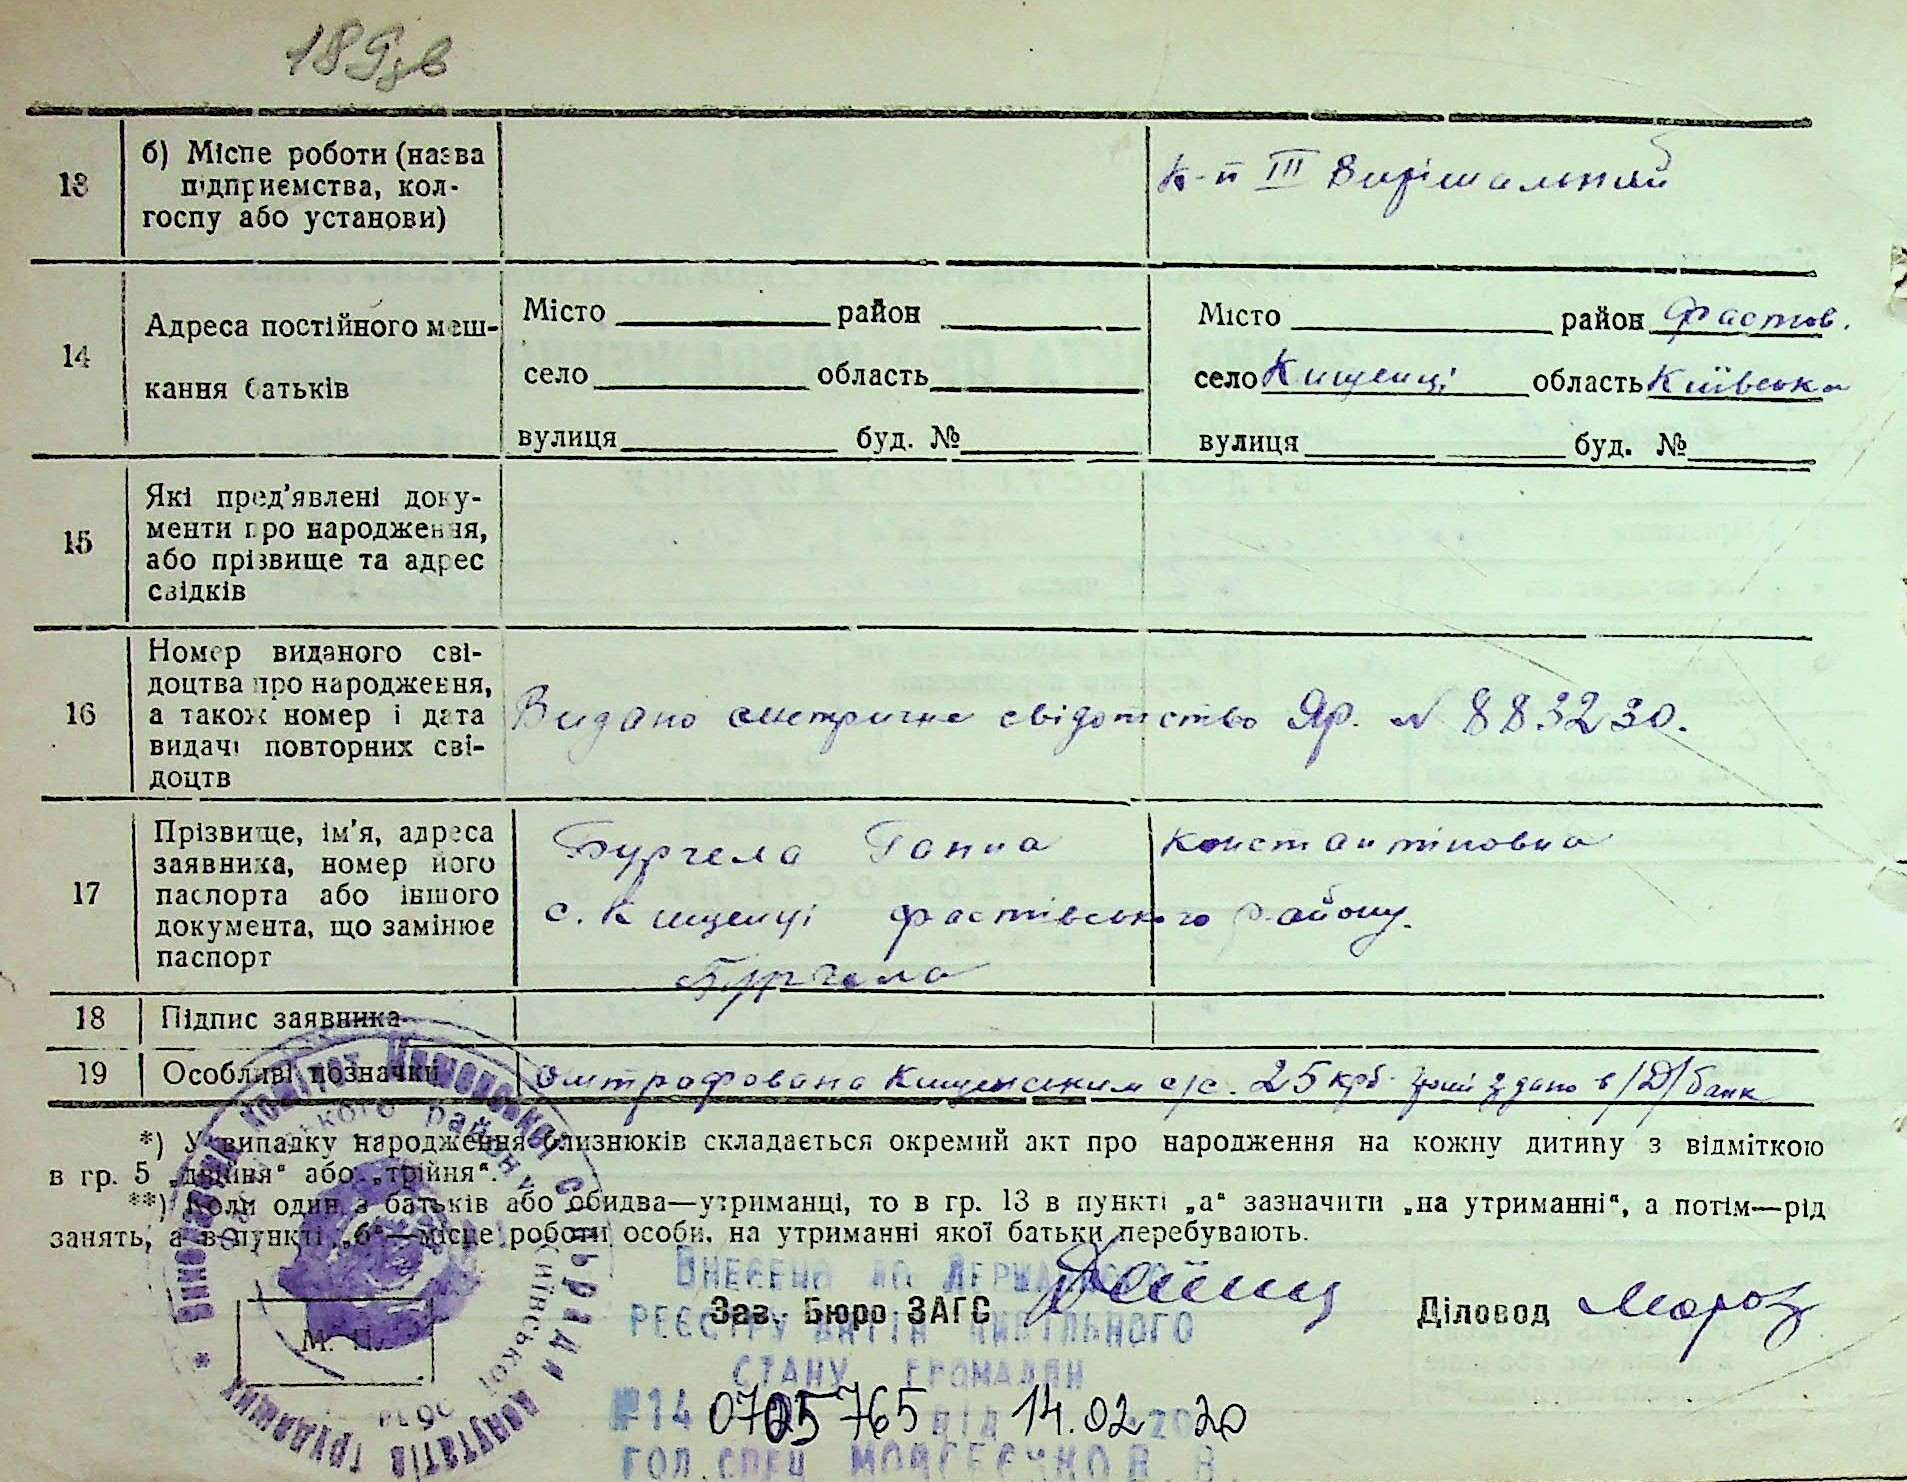 189зв
13
б) Місце роботи (назва
підприємства, кол-
госпу або установи)
к-п III Вирішальний
14
Адреса постійного меш-
кання батьків
Місто район
село область
вулиця буд. №
Місто район Фастов.
село Кищенці область Київська
вулиця буд. №
15
Які пред'явлені доку-
менти про народження,
або прізвище та адрес
свідків
16
Номер виданого сві-
доцтва про народження,
а також номер і дата
видачі повторних сві-
доцтв
Видано свідотство Яр. № 883230.
17
Прізвище, ім'я, адреса
заявника, номер його
паспорта або іншого
документа, що замінює
паспорт
Бургела Ганна Константіновна
с. Кищенці фастівського району.
Бургела
18
Підпис заявника
19
Особливі позначки
Оштрафована Кищенським с/с. 25 крб. здано в /Д/ банк
*) У випадку народження близнюків складається окремий акт про народження на кожну дитину з відміткою
в гр. 5 „двійня“ або „трійня“.
**) Коли один з батьків або обидва—утриманці, то в гр. 13 в пункті „а“ зазначити „на утриманні“, а потім—рід
занять, а в пункті „б“—місце роботи особи, на утриманні якої батьки перебувають.
Виконавчий комітет Кищенської сільради депутатів трудящих
району Київської обл.
М. П.
Зав. Бюро ЗАГС
Діловод Мороз
ВНЕСЕНО ДО ДЕРЖАВНОГО
РЕЄСТРУ АКТІВ ЦИВІЛЬНОГО
СТАНУ ГРОМАДЯН
№14 0705765 ВІД 14.02.2020
ГОЛ.СПЕЦ МОЙСЕЄНКО В. В.